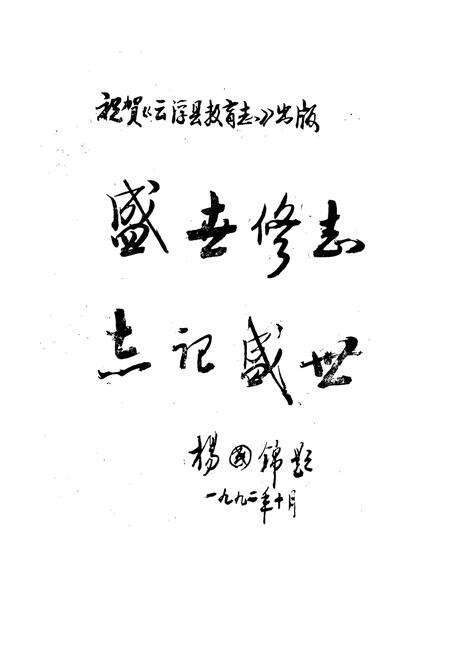 祝賀《云浮县教育志》出版
盛世修志
志记盛世
楊國錦题
一九九二年十月